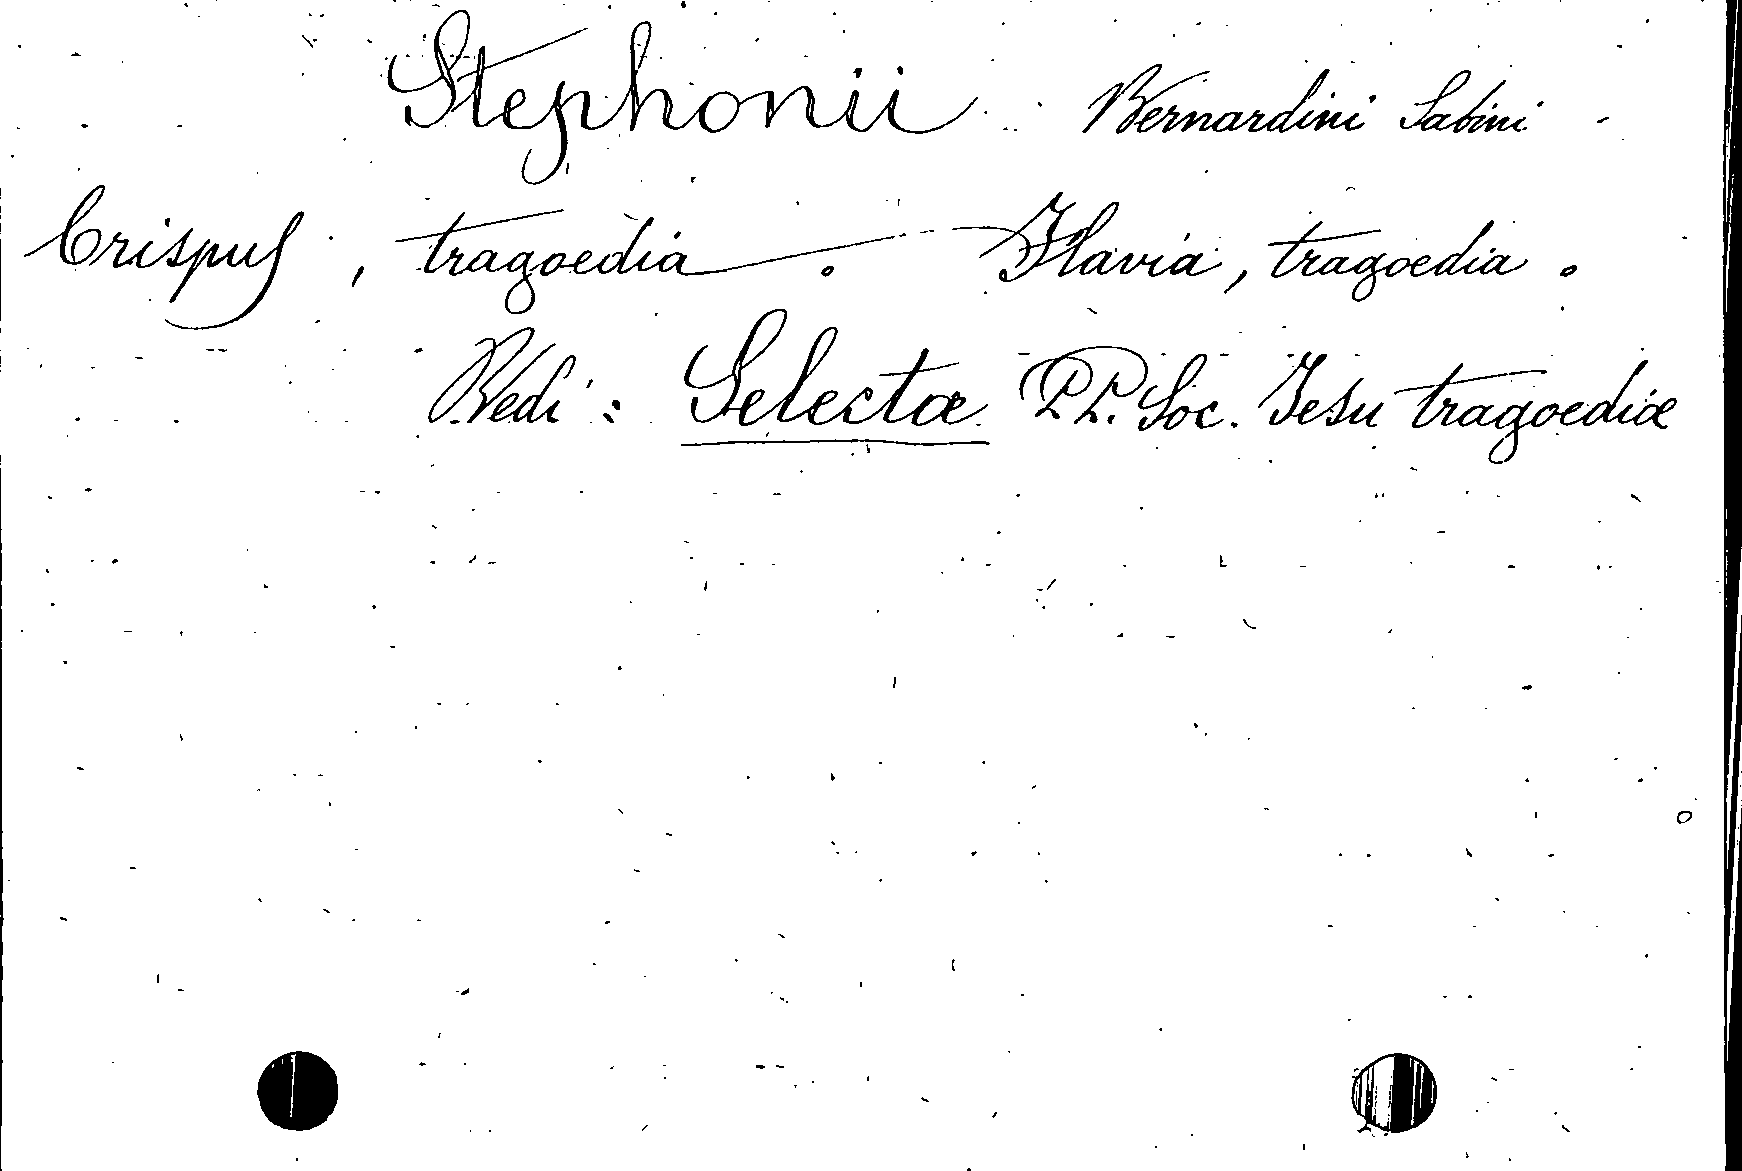 Stephonii Bernardini Sabini
Crispus, tragoedia. Flavia, tragoedia.
Vedi: Selectæ PP. Soc. Jesu tragoediæ